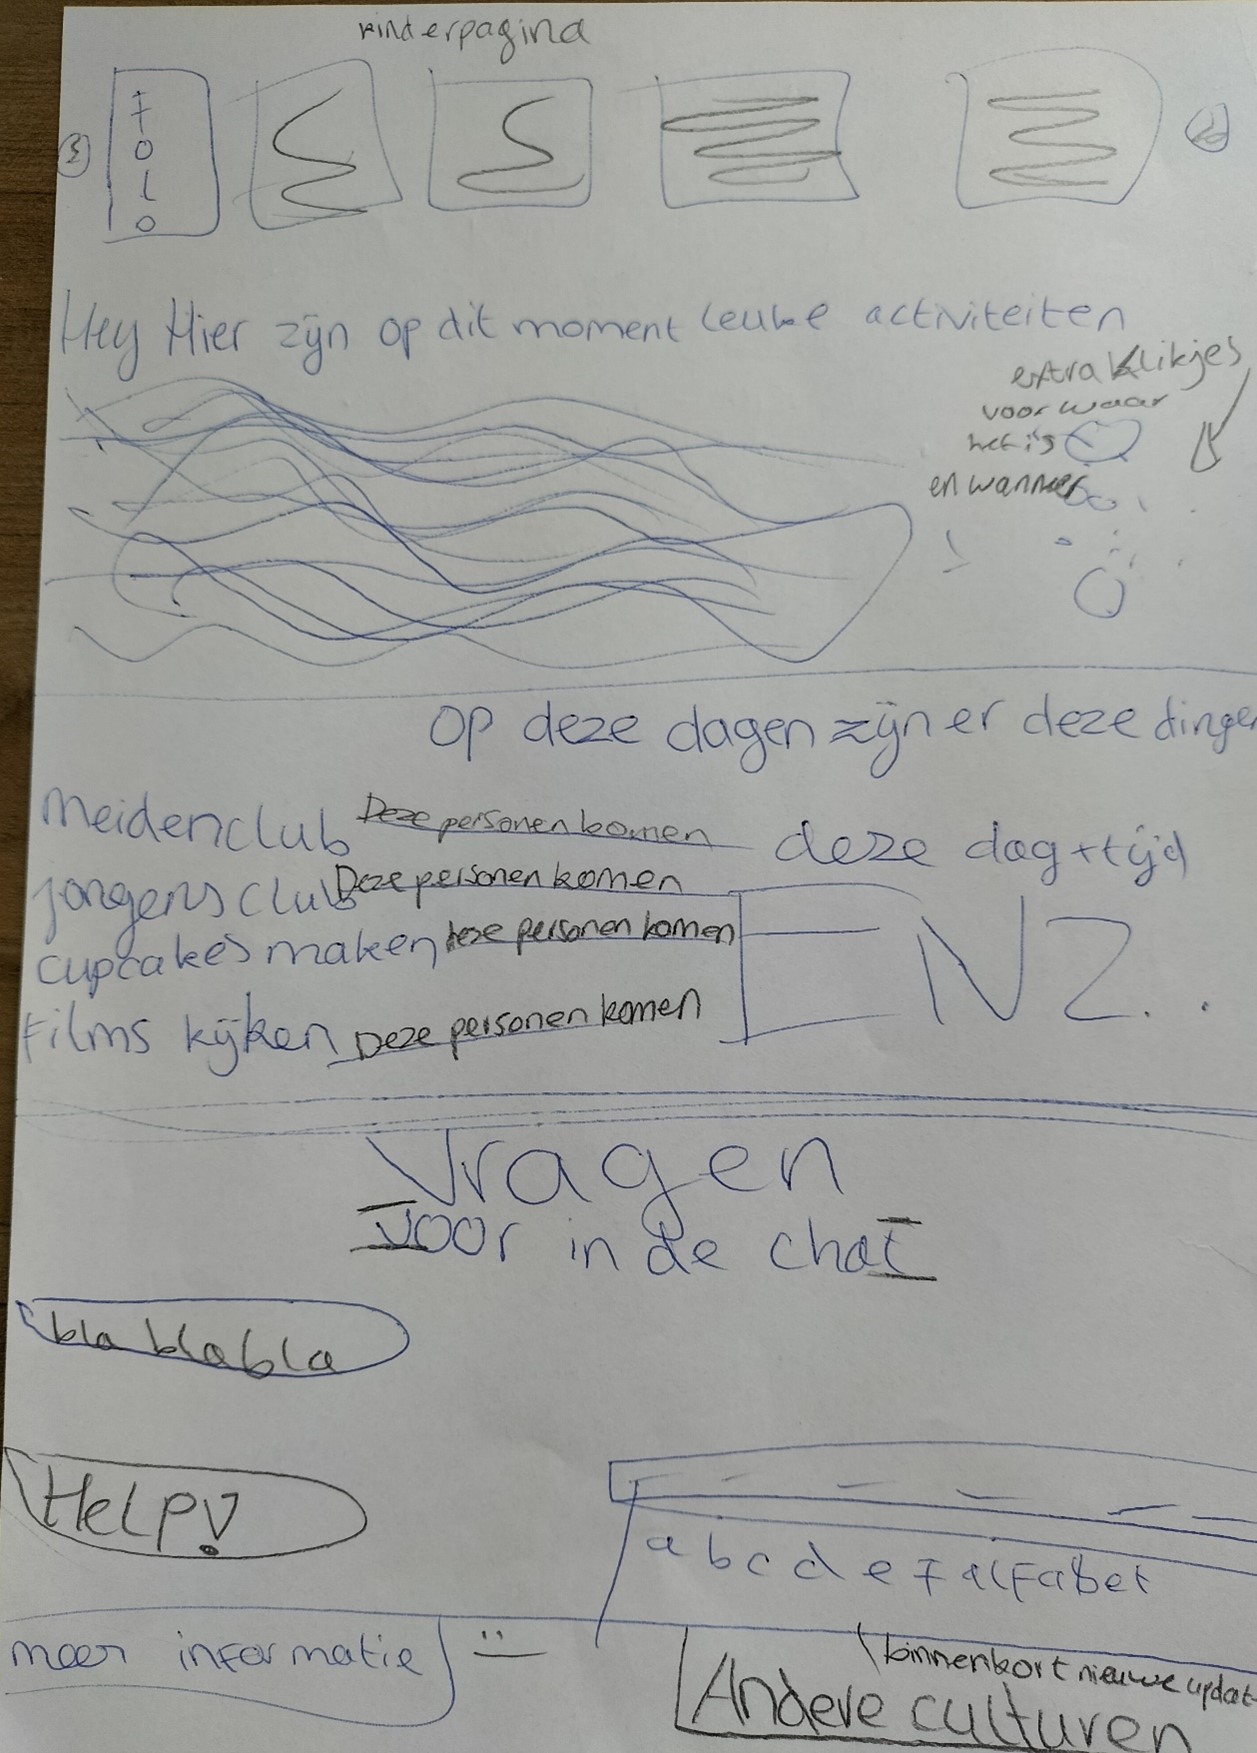 kinderpagina
foto
Hey Hier zijn op dit moment leuke activiteiten
extra klikjes
voor waar
het is
en wanneer
Op deze dagen zijn er deze dingen
meidenclub Deze personen komen deze dag + tijd
jongensclub Deze personen komen
cupcakes maken deze personen komen ENZ..
Films kijken Deze personen komen
Vragen
voor in de chat
bla blabla
HELP!
a b c d e f alfabet
meer informatie
binnenkort nieuwe updat
Andere culturen